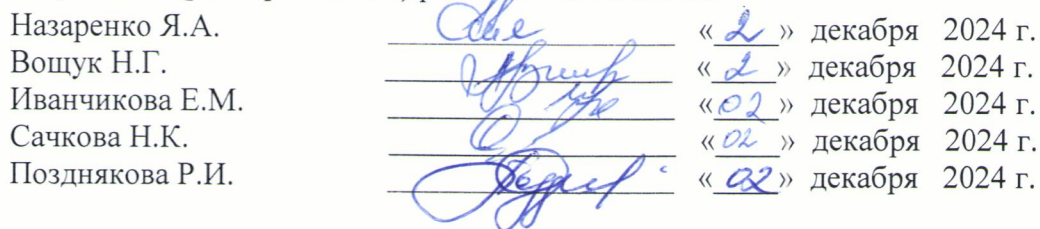 Назаренко Я.А. «2» декабря 2024 г.
Вощук Н.Г. «2» декабря 2024 г.
Иванчикова Е.М. «02» декабря 2024 г.
Сачкова Н.К. «02» декабря 2024 г.
Позднякова Р.И. «02» декабря 2024 г.